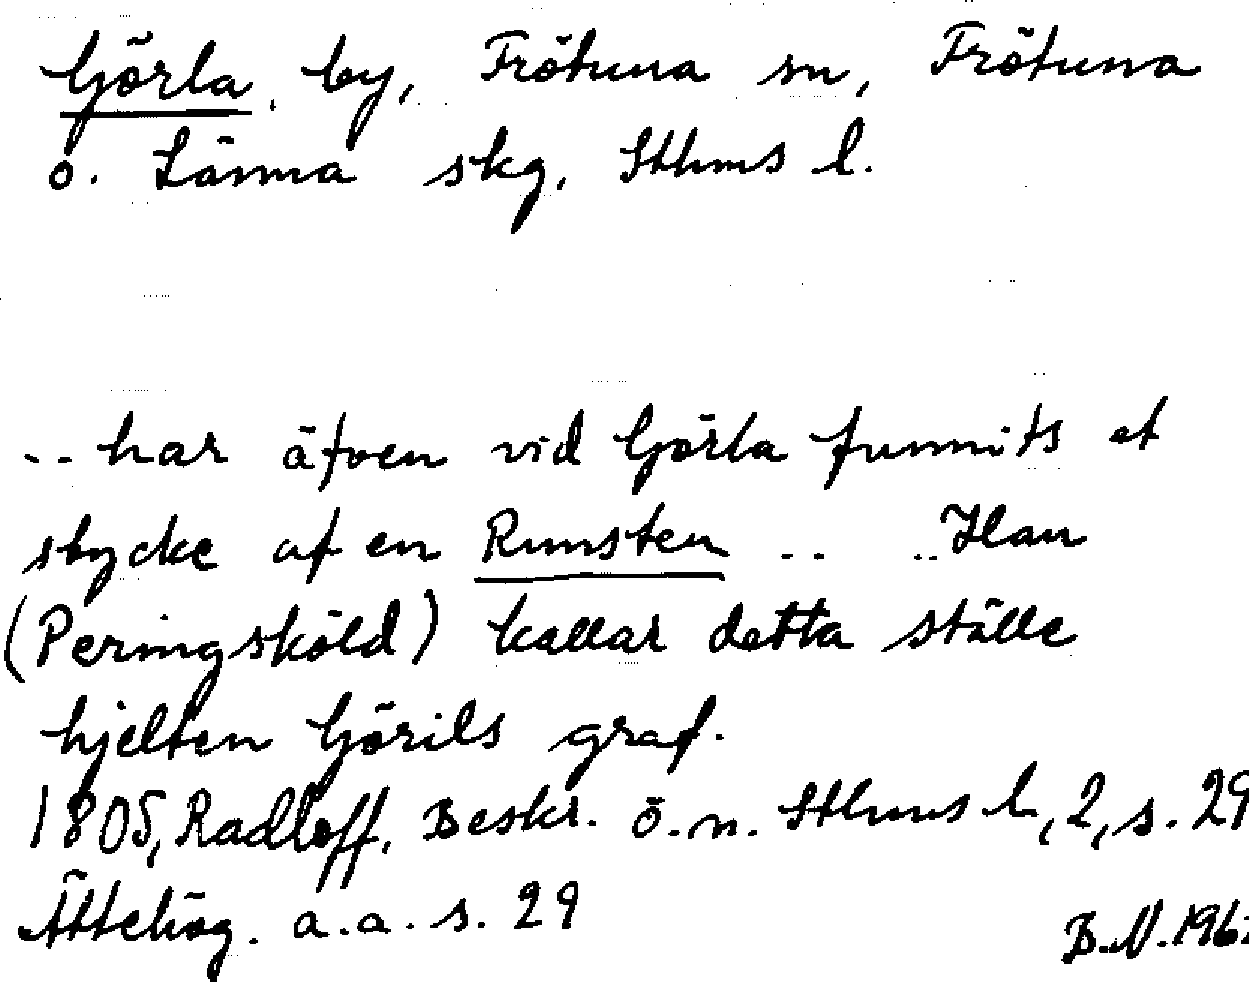 Görla, by, Frötuna sn, Frötuna
o. Länna skg, Sthms l.
.. har äfven vid Görla funnits et
stycke af en Runsten .. .. Han
(Peringsköld) kallar detta ställe
hjelten Görils graf.
1805, Radloff, Beskr. ö. n. Sthms l., 2, s. 29
Ättehög. a.a. s. 29
B.N. 196